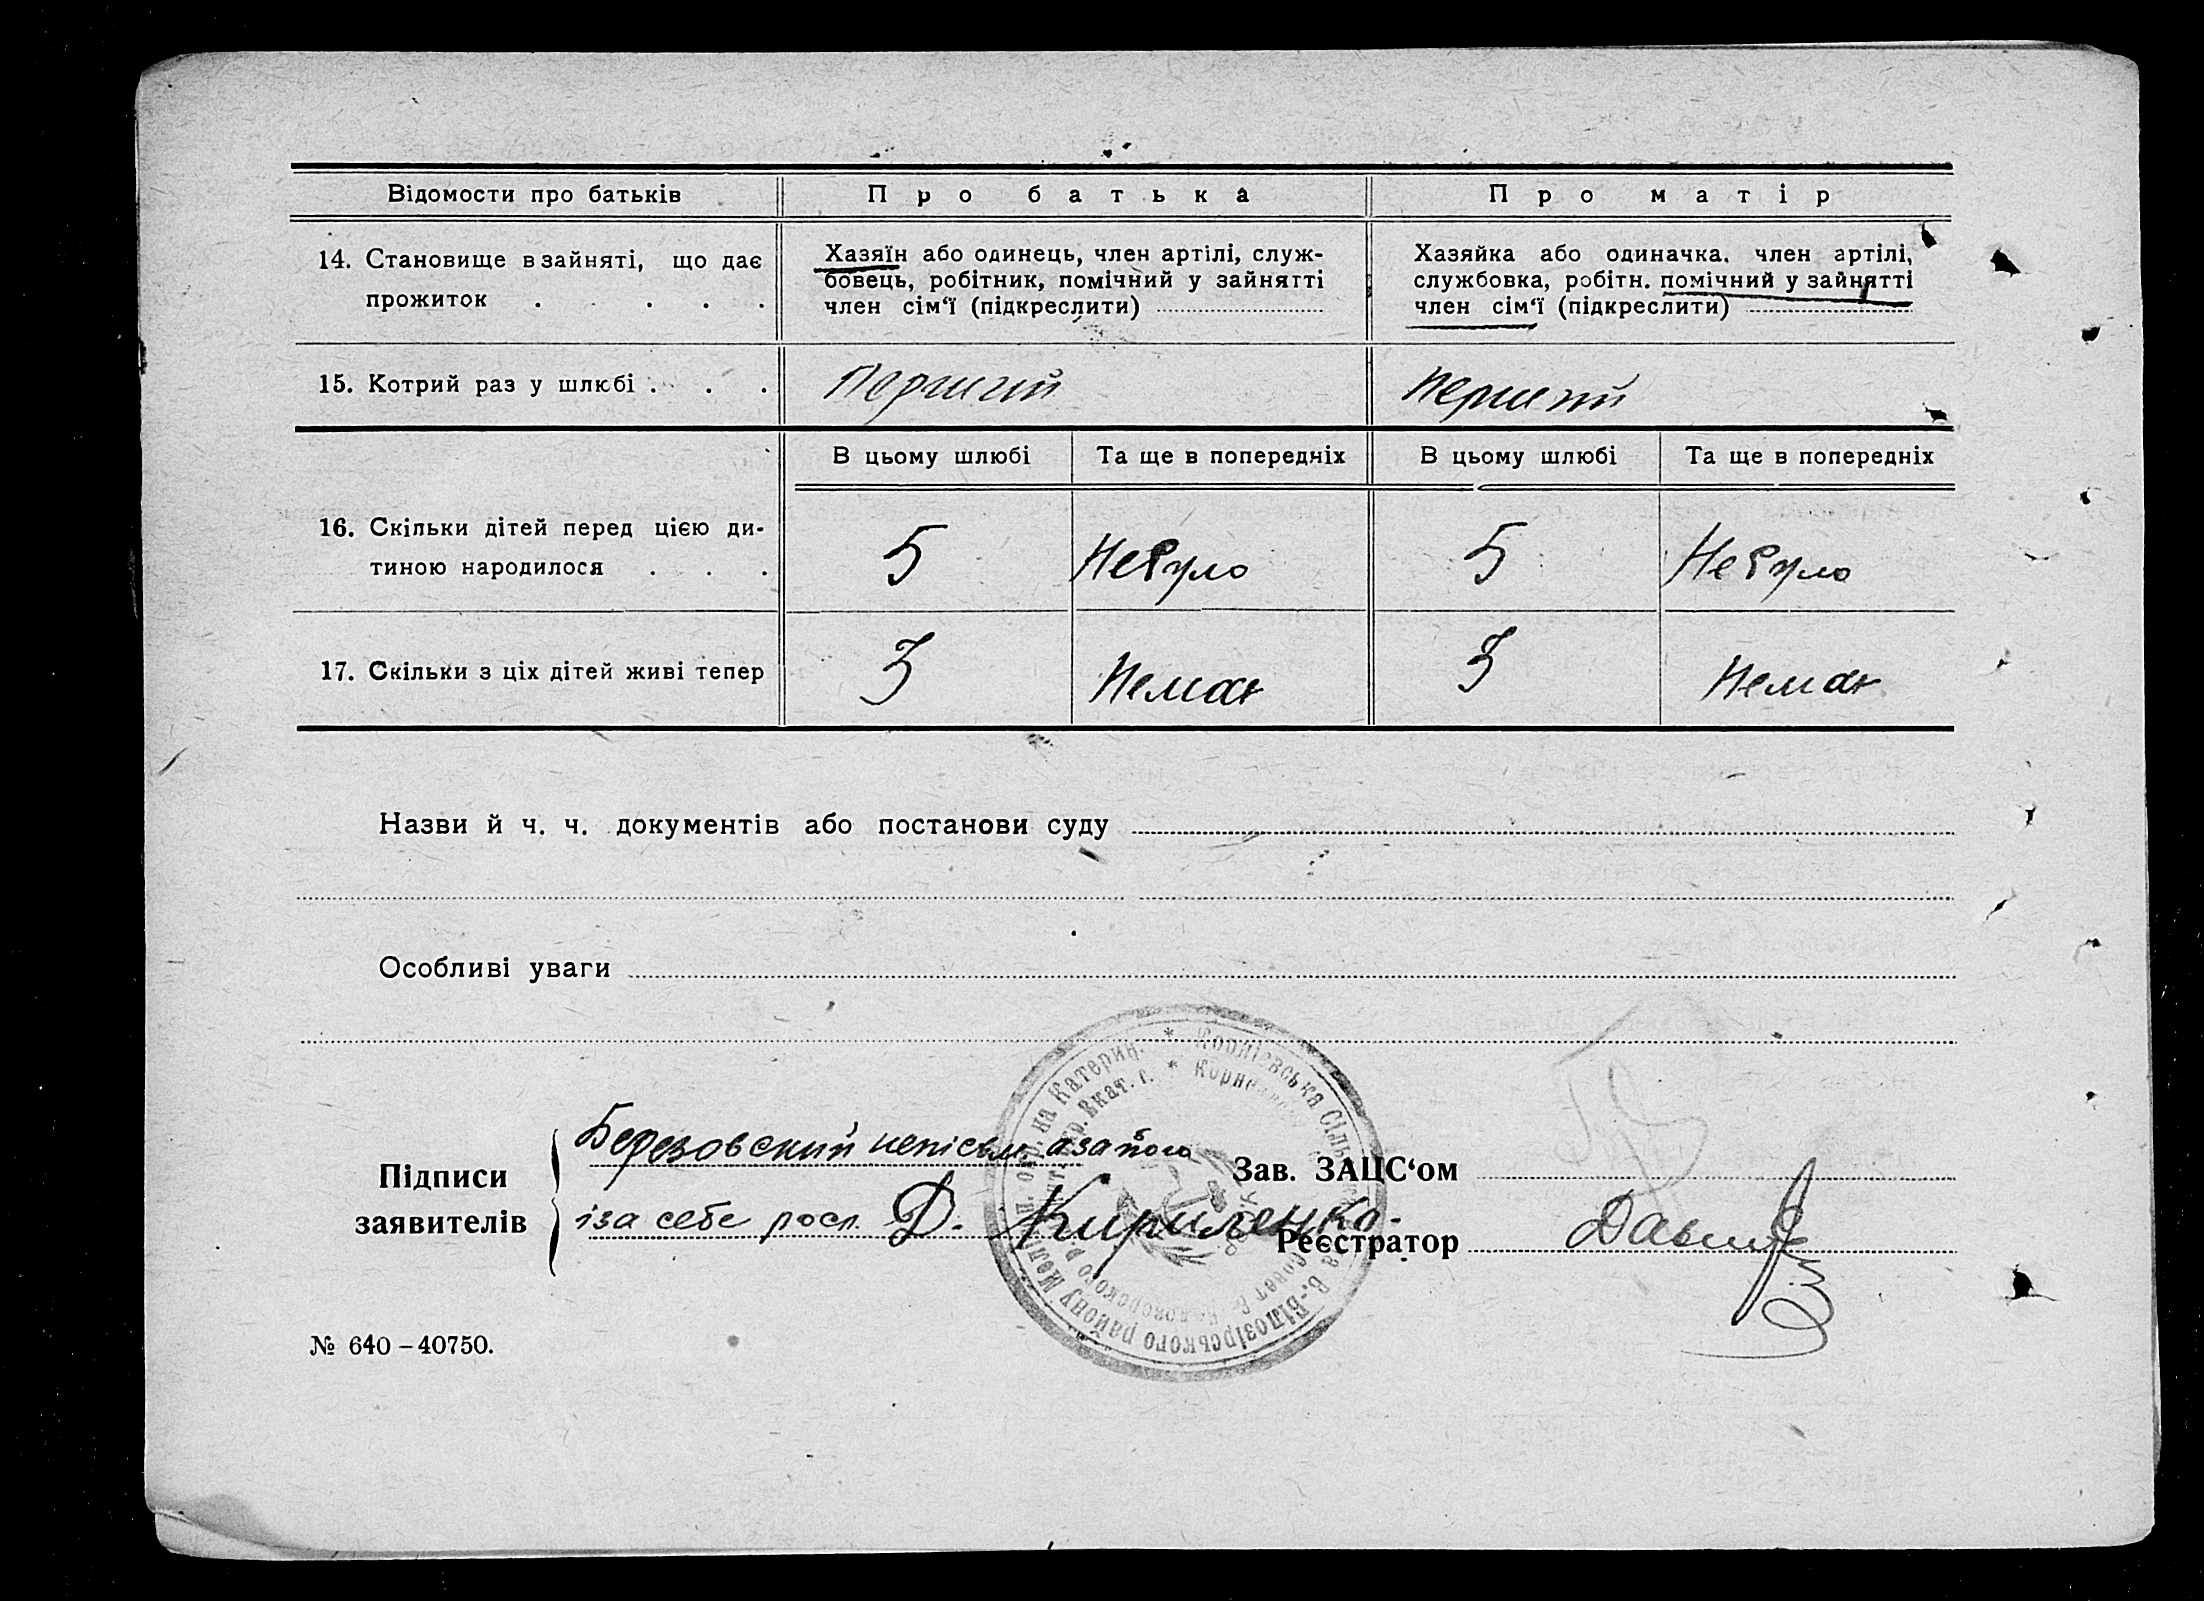 Відомости про батьків
Про батька
Про матір
14. Становище в зайняті, що дає
прожиток . . . .
Хазяїн або одинець, член артілі, служ-
бовець, робітник, помічний у зайнятті
член сім‘ї (підкреслити)
Хазяйка або одиначка. член артілі,
службовка, робітн. помічний у зайнятті
член сім‘ї (підкреслити)
15. Котрий раз у шлюбі . . .
Перший
Перший
В цьому шлюбі
Та ще в попередніх
В цьому шлюбі
Та ще в попередніх
16. Скільки дітей перед цією ди-
тиною народилося . . .
5
Небуло
5
Небуло
17. Скільки з ціх дітей живі тепер
3
Немає
3
Немає
Назви й ч. ч. документів або постанови суду
Особливі уваги
Підписи
заявителів
Березовский неписьм. азатого
іза себе росп. Д. Кириленко
Зав. ЗАЦС‘ом
Реєстратор
* Сільська В.-Білозірського району окр. на Катерин.
№ 640 – 40750.